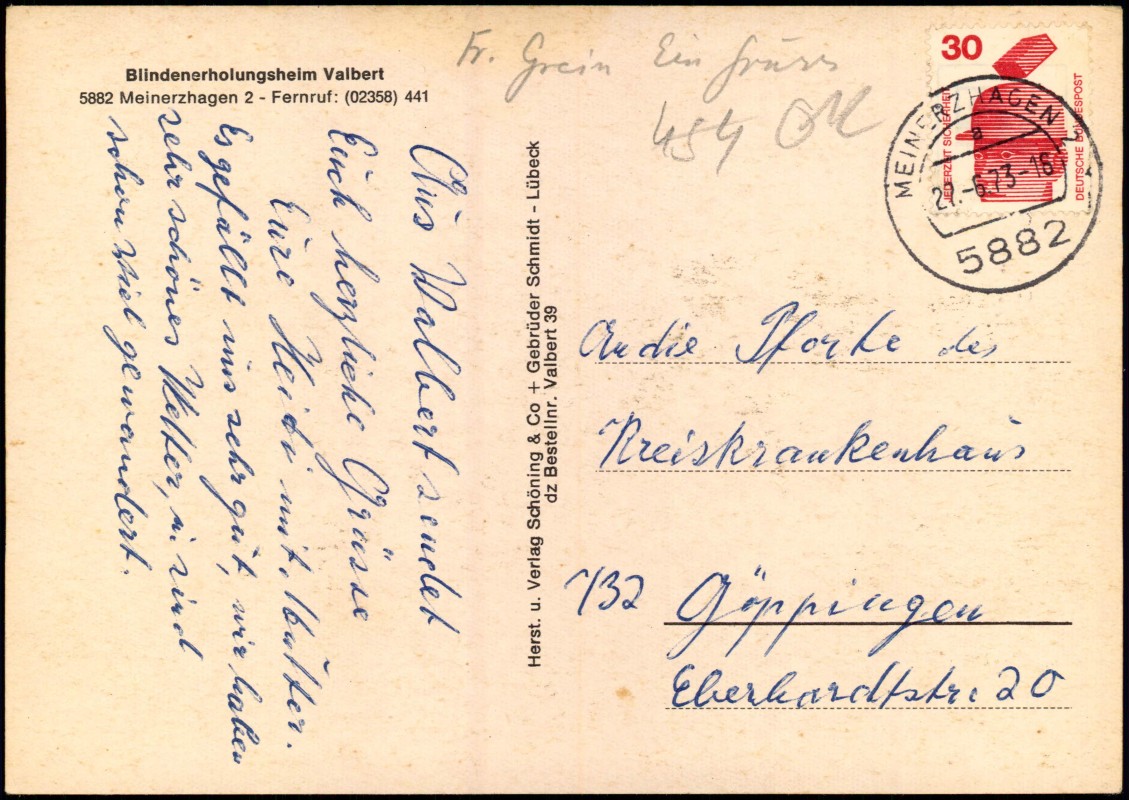 Blindenerholungsheim Valbert
5882 Meinerzhagen 2 - Fernruf: (02358) 441
Aus Valbert sendet
Euch herzliche Grüsse
Eure Heidi mit. Mutter.
Es gefällt uns sehr gut, wir haben
sehr schönes Wetter, u. sind
schon viel gewandert.
Herst. u. Verlag Schöning & Co + Gebrüder Schmidt - Lübeck
dz Bestellnr. Valbert 39
Fr. Grein Ein
484
30
JEDERZEIT SICHERHEIT
DEUTSCHE BUNDESPOST
MEINERZHAGEN
a
-6.73-16
5882
An die Pforte des
Kreiskrankenhaus
732 Göppingen
Eberhardtstr. 20